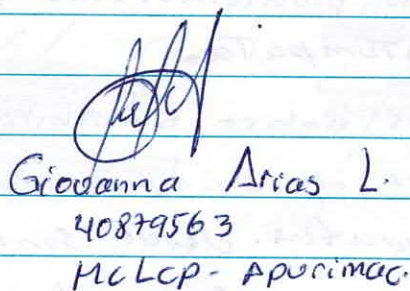 Giovanna Arias L.
40879563
MCLCP - Apurimac.